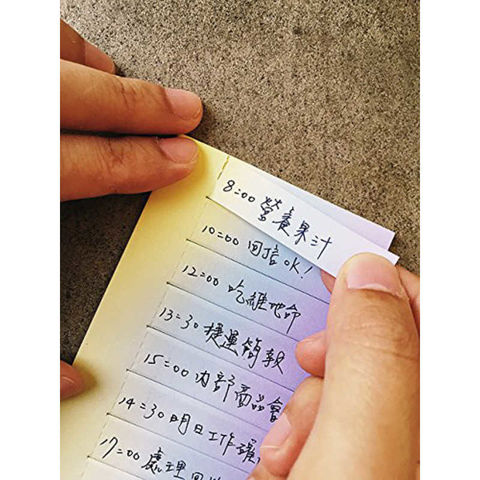 8:00 營養果汁
10:00 回信OK!
12:00 吃維他命
13:30 捷運簡報
15:00 內部商品會
14:30 明日工作確
17:00 處理回